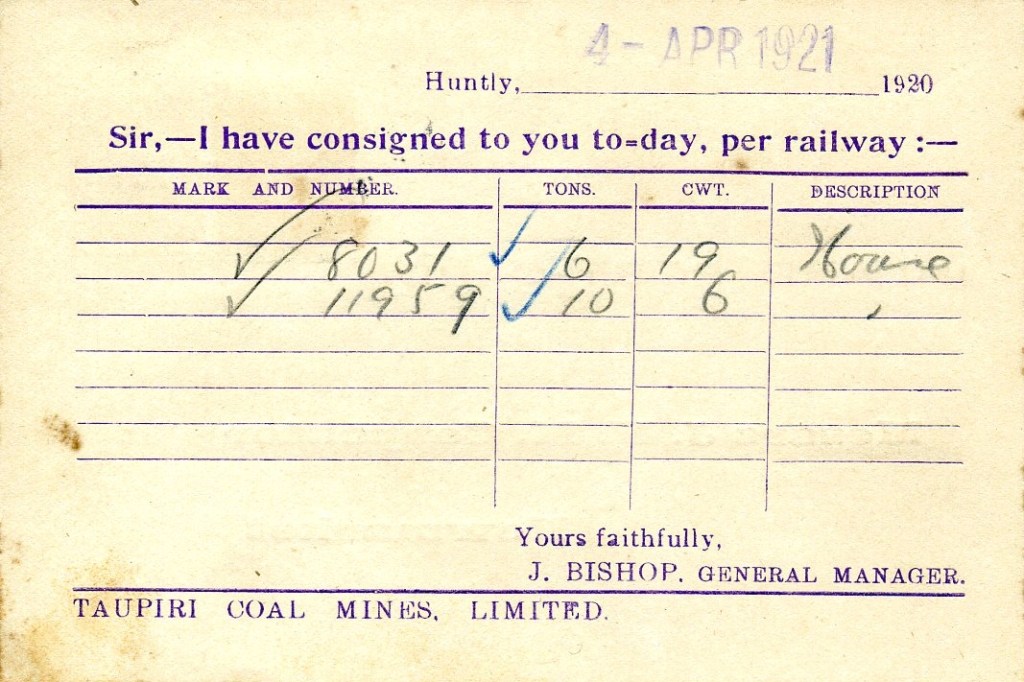 4 - APR 1921
Huntly, 1920
Sir,—I have consigned to you to=day, per railway :—
MARK AND NUMBER. TONS. CWT. DESCRIPTION
8031 6 19 House
11959 10 6 "
Yours faithfully,
J. BISHOP. GENERAL MANAGER.
TAUPIRI COAL MINES, LIMITED.